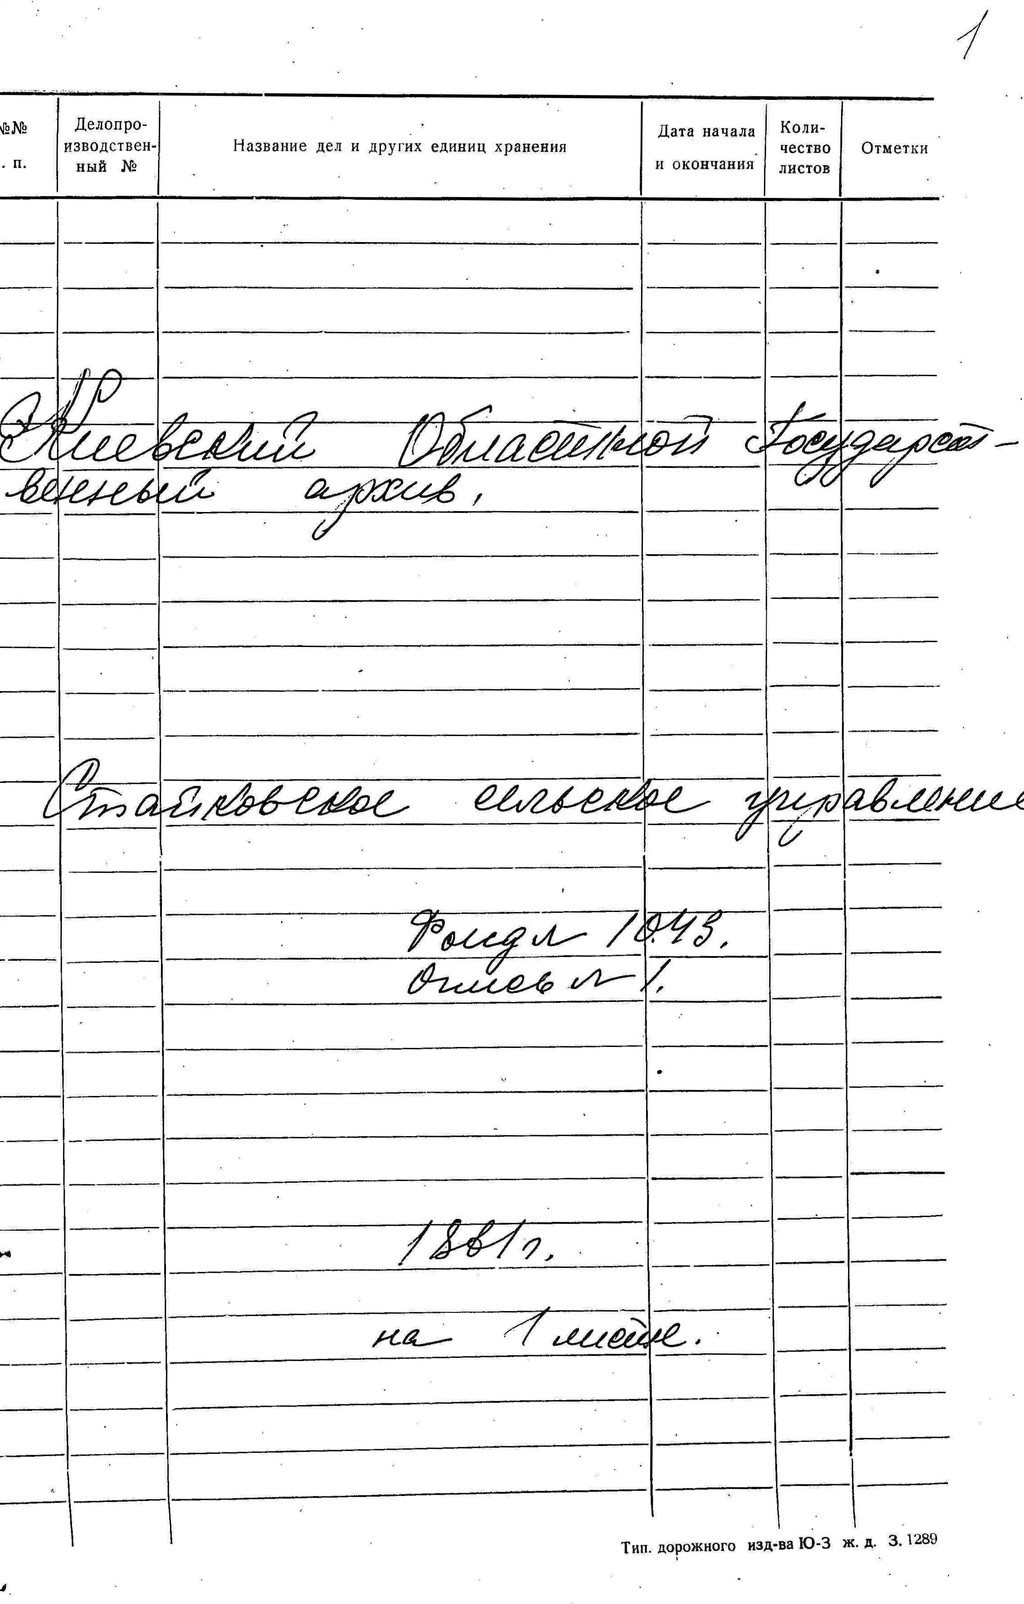 1
№№ Делопро- Название дел и других единиц хранения Дата начала Коли- Отметки
. п. изводствен- и окончания чество
ный № листов
Киевский Областной Государст-
венный архив.
Стайковское сельское управление
Фонд № 1043.
Опись № 1.
1861 г.
на 1 листе.
Тип. дорожного изд-ва Ю-З ж. д. З. 1289